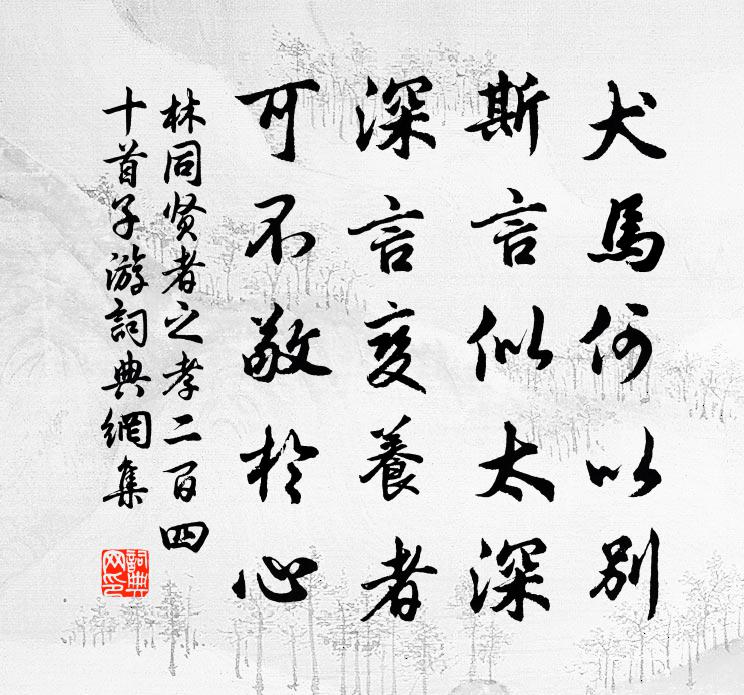 犬馬何以别
斯言似太深
深言爱養者
可不敬於心
林同贤者之孝二百四
十首子游詞典網集
詞典网印